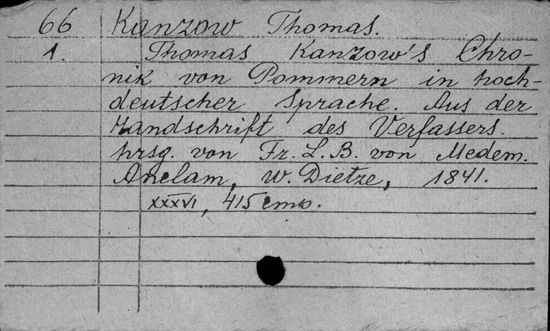 66 Kanzow Thomas.
1. Thomas Kanzow's Chro-
nik von Pommern in hoch-
deutscher Sprache. Aus der
Handschrift des Verfassers.
hrsg. von Fr. L. B. von Medem.
Anclam, W. Dietze, 1841.
XXXVI, 415 стр.